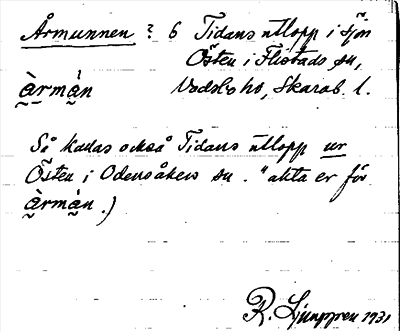 Årmunnen ? 6 Tidans utlopp i sjön
Östen i Flistads sn,
àrmàn Vadsbo hd, Skarab. l.
Så kallas också Tidans utlopp ur
Östen i Odensåkers sn. "akta er för
àrmàn.)
R. Ljunggren 1931